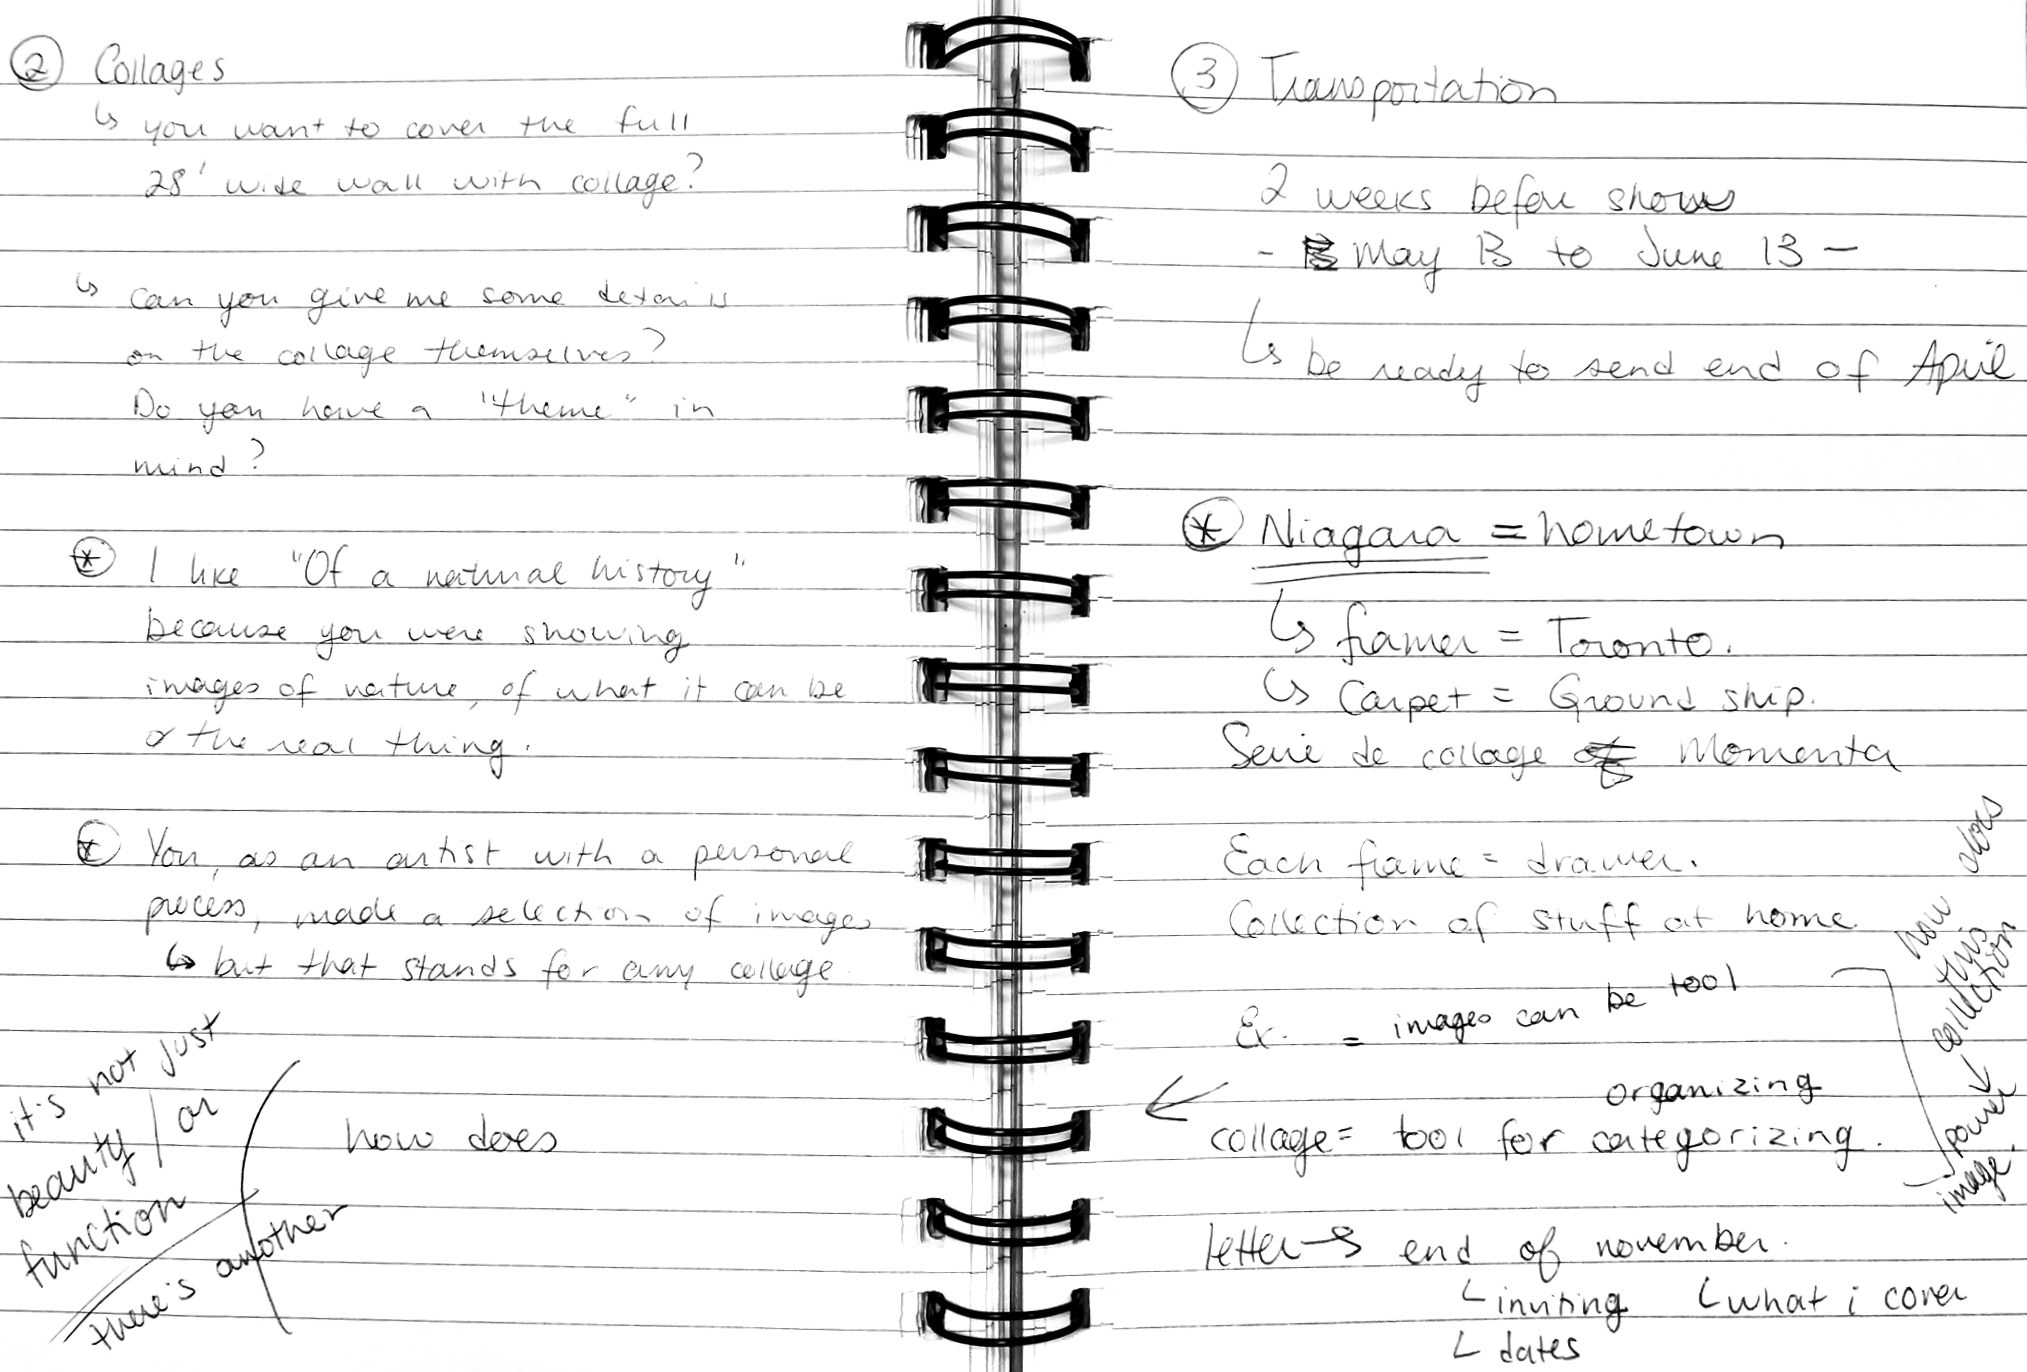 ② Collages
↳ you want to cover the full
28' wide wall with collage?
↳ can you give me some details
on the collage themselves?
Do you have a "theme" in
mind?
* I like "Of a natural history"
because you were showing
images of nature, of what it can be
or the real thing.
* You, as an artist with a personal
process, made a selection of images
↳ but that stands for any collage.
it's not just
beauty / or
function
there's another
how does
③ Transportation
2 weeks before shows
- May 13 to June 13 -
↳ be ready to send end of April
* Niagara = hometown
↳ framer = Toronto.
↳ Carpet = Ground ship.
Serie de collage Momenta
Each frame = drawer.
Collection of stuff at home.
Ex. = images can be tool
organizing
collage = tool for categorizing.
how does
this
collection
↓
power
image.
letter → end of november.
↳ inviting ↳ what i cover
↳ dates